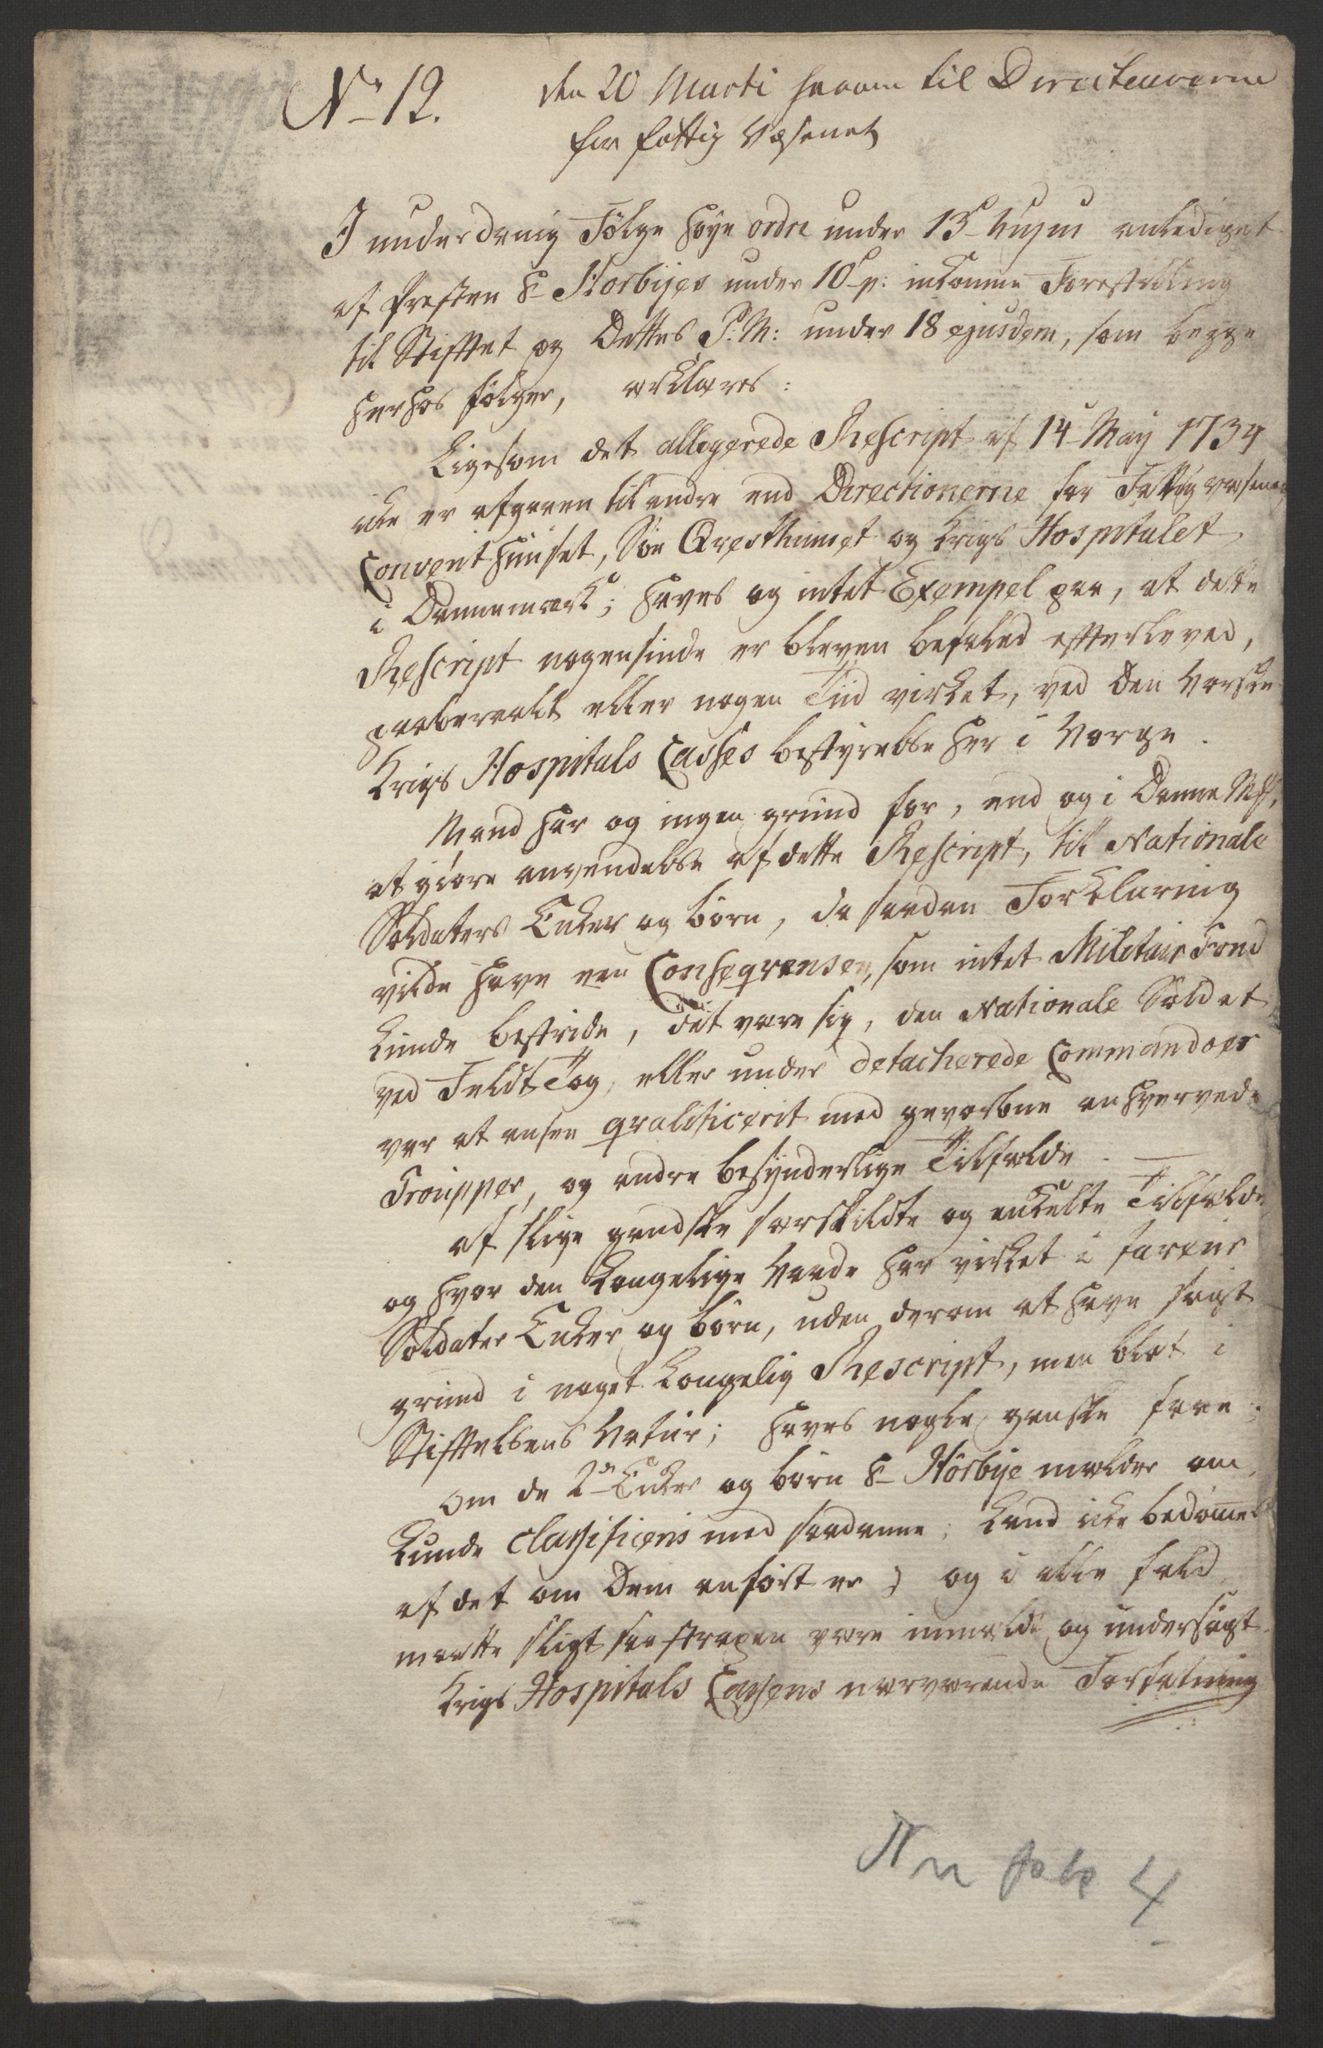 No 12.
den 20 Marti herom til Directeurerne
for fattig Væsenet
I underdanig Følge høye ordre under 13de hujus anlediget
af Præsten Hr Horbyes under 10de p: indkomne Forestilling
til Stifftet og Dettes P.M: under 18 ejusdem, som begge
herhos følger, erklæres:
Ligesom det allegerede Rescript af 14de May 1734
icke er afgaaen til andre end Directionerne for Fattigvæsenet,
Convent Huuset, Søe Qvæsthuuset og Krigs Hospitalet
i Dannemark; haves og intet Exempel paa, at dette
Rescript nogensinde er bleven befaled effterleved,
paaberaabt eller nogen Tiid virket, ved den Norske
Krigs Hospitals Casses bestyrelse her i Norge.
Mand har og ingen grund for, end og i Denne
at giøre anvendelse af dette Rescript, til Nationale
Soldaters Enker og børn, da saadan Forklaring
vilde have een Conseqvenser, som intet Militair Fond
kunde bestride, det være sig, den Nationale Soldat
ved Feldt Tog, eller under detacherede Commandoer
var at ansee qvalificerit med gevorbne anhvervede
Troupper, og andre besynderlige Tilfælde. —
af slige gandske særskildte og enkelte Tilfælde
og hvor den Kongelige Naade har virket i faveur
Soldater Enker og børn, uden derom at have søgt
grund i noget Kongelig Rescript, men blot i
Stifftelsens Natur; haves nogle ganske faae;
Om de 2de Enker og børn Hr Hörbye melder om,
kunde classificeris med saadanne; kand icke bedømmes
af det om Dem anført er; og i alle fald
maatte sligt være anmeldt og undersøgt.
Krigs Hospitals Cassens nærværende Forfatning
4